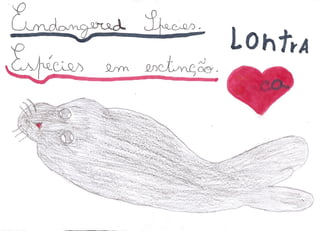 Eindangered Species.
Espécies em extinção.
LontrA
ca